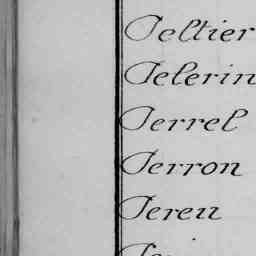 Peltier
Pelerin
Perrel
Perron
Pereu